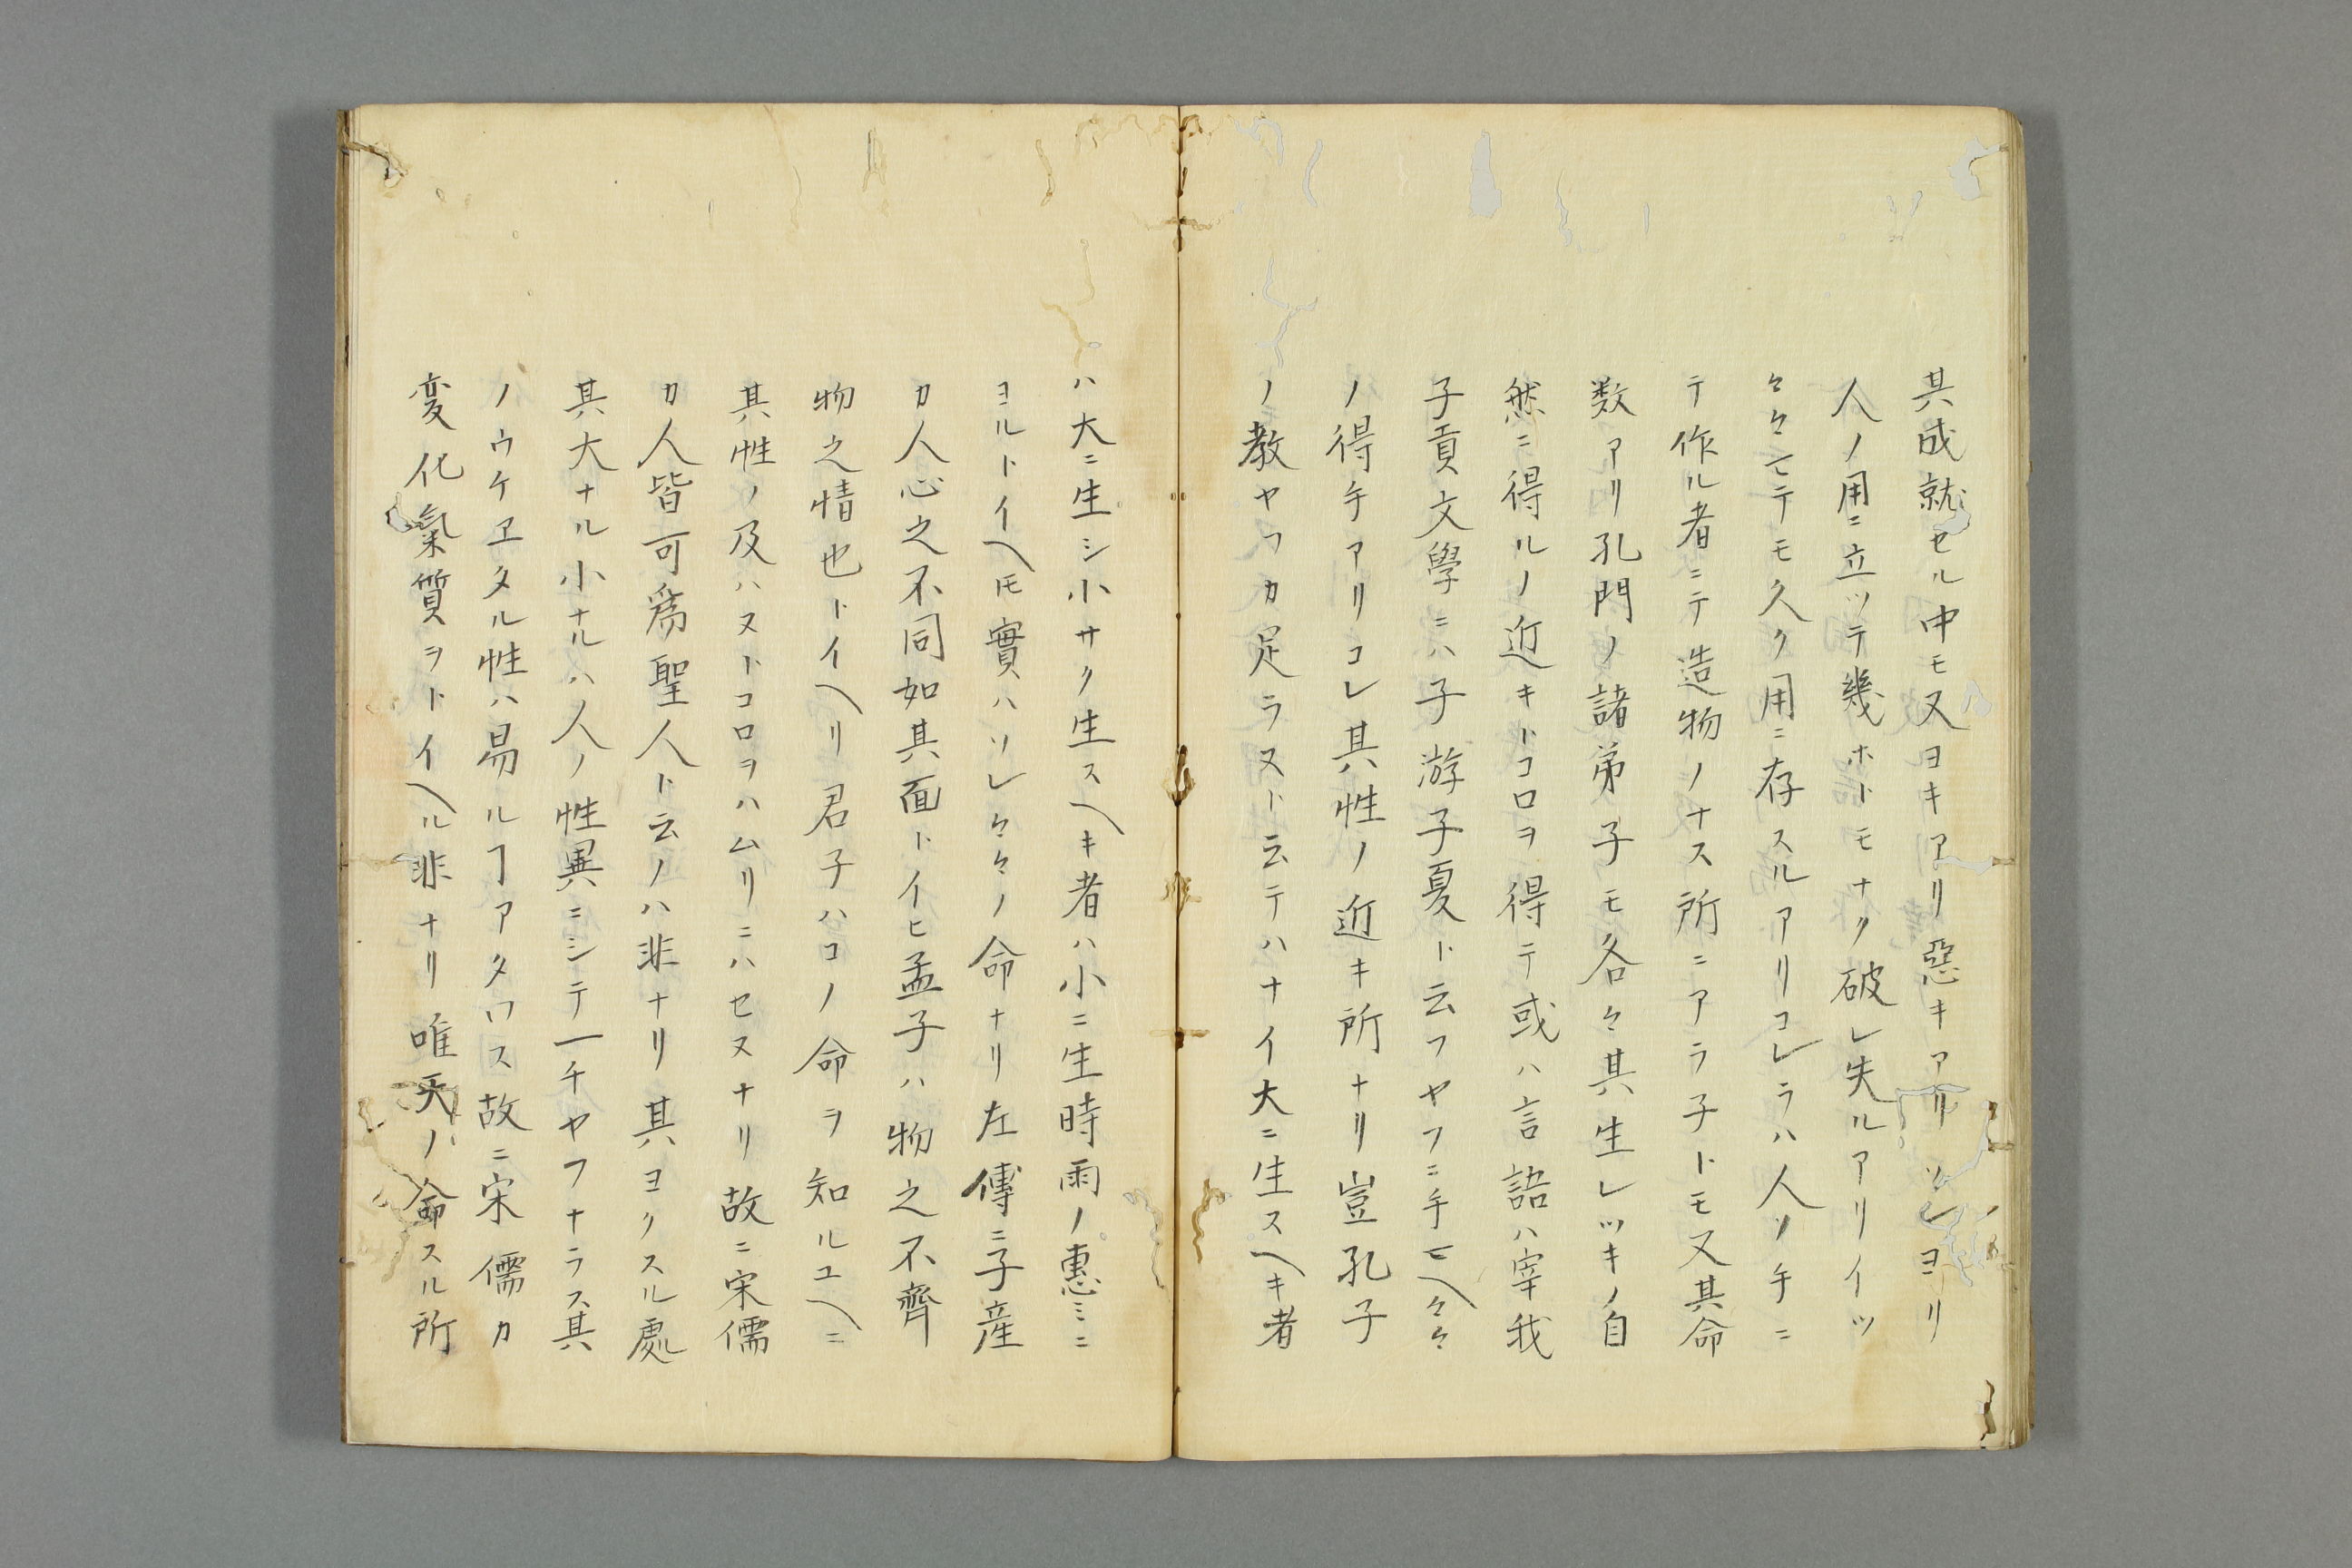 其成就セル中モ又ヨキアリ惡キアリソレヨリ
人ノ用ニ立ツテ幾ホトモナク破レ失ルアリイツ
々々マテモ久ク用ニ存スルアリコレラハ人ノ手ニ
テ作ル者ニテ造物ノナス所ニアラ子トモ又其命
数アリ孔門ノ諸弟子モ各々其生レツキノ自
然ニ得ルノ近キトコロヲ得テ或ハ言語ハ宰我
子貢文學ニハ子游子夏ト云フヤフニ手マヘ々々
ノ得手アリコレ其性ノ近キ所ナリ豈孔子
ノ教ヤフカ足ラヌト云テハナイ大ニ生スヘキ者
ハ大ニ生シ小サク生スヘキ者ハ小ニ生時雨ノ惠ミニ
ヨルトイヘ𪜈實ハソレ々々ノ命ナリ左傳ニ子産
カ人心之不同如其面トイヒ孟子ハ物之不齊
物之情也トイヘリ君子ハコノ命ヲ知ルユヘニ
其性ノ及ハヌトコロヲハムリニハセヌナリ故ニ宋儒
カ人皆可爲聖人ト云ノハ非ナリ其ヨクスル處
其大ナル小ナルハ人ノ性異ニシテ一チヤフナラス其
ノウケヱタル性ハ易ルヿアタワス故ニ宋儒カ
変化氣質ヲトイヘル非ナリ唯天ノ命スル所